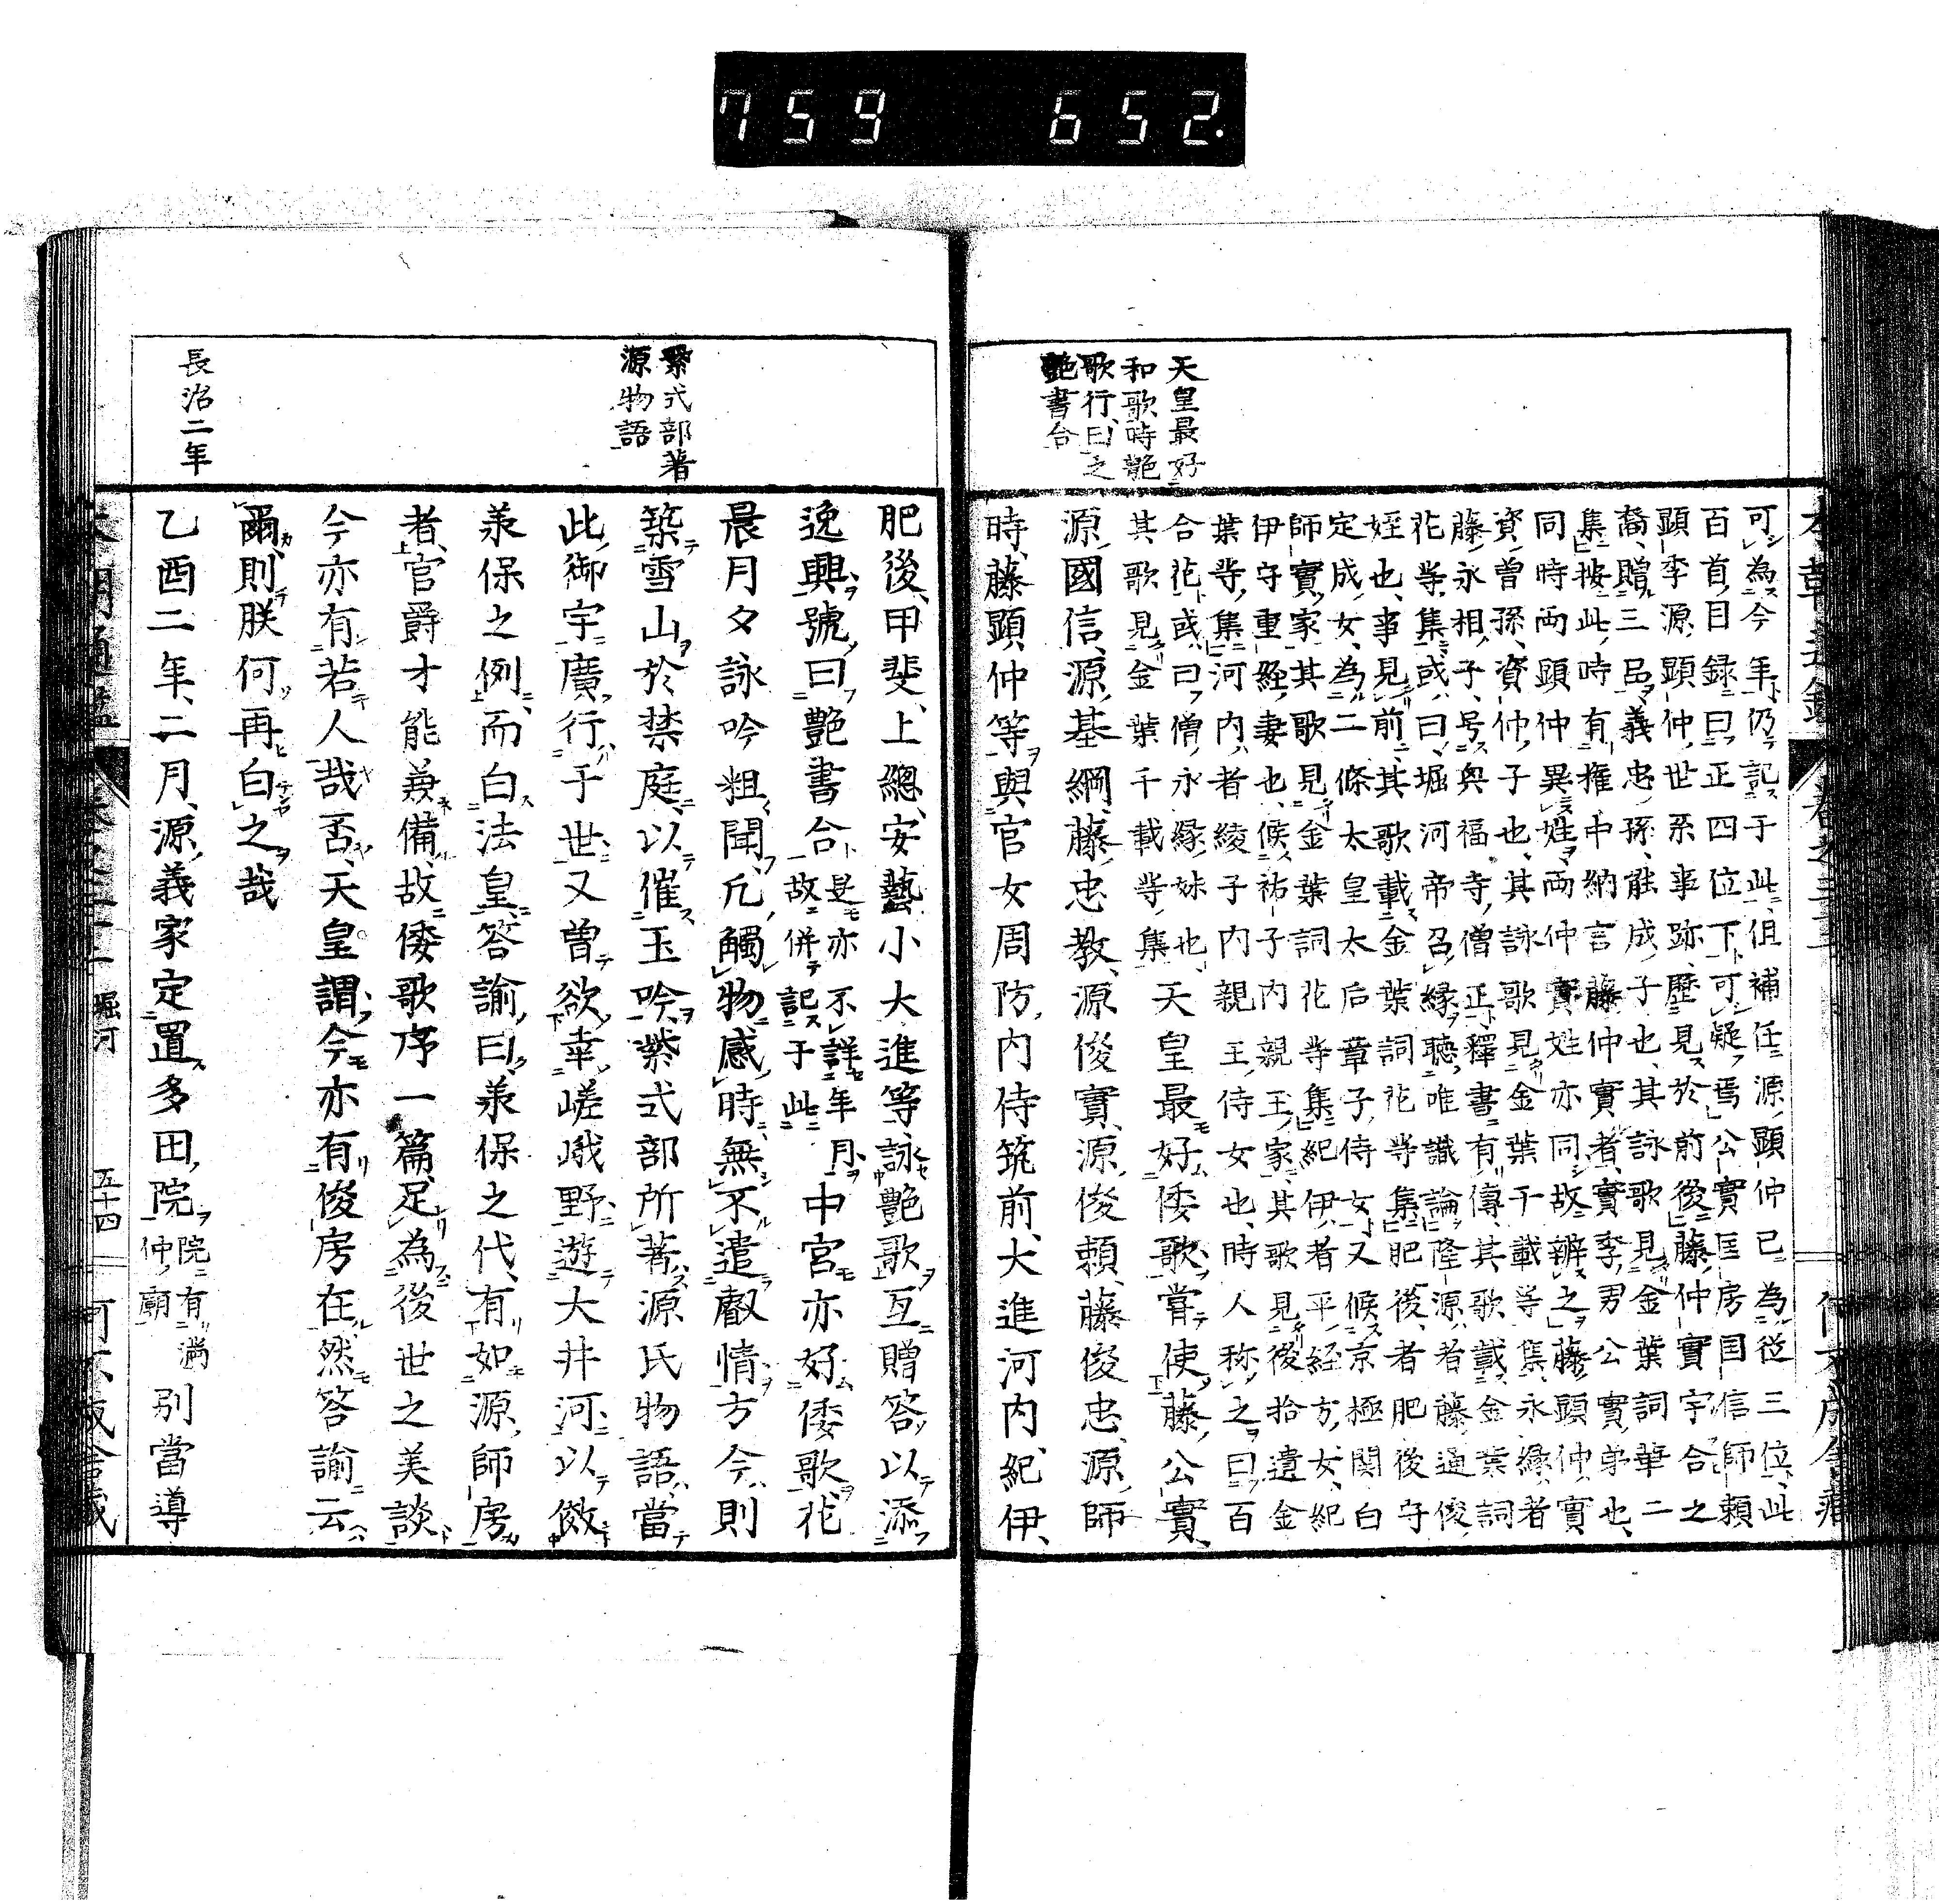 759 652.
天皇最好
和歌時艶
歌行曰之
艶書合
可為今年仍記于此但補任源顕仲已為従三位此
百首目録曰正四位下可疑焉公實匡房国信師頼
顕季源顕仲世系事跡歴見於前後藤仲實宇合之
裔贈三品義忠孫能成子也其詠歌見金葉詞華二
集按此時有権中納言藤仲實者實季男公實弟也
同時両顕仲異姓両仲實姓亦同故辨之藤顕仲實
資曽孫資仲子也其詠歌見金葉千載等集永縁者
藤永相子号興福寺僧正釋書有傳其歌載金葉詞
花等集或曰堀河帝召縁聴唯識論隆源者藤通俊
姪也事見前其歌載金葉詞花等集肥後者肥後守
定成女為二條太皇太后章子侍女又候京極関白
師實家其歌見金葉詞花等集紀伊者平経方女紀
伊守重経妻也候祐子内親王家其歌見後拾遺金
葉等集河内者綾子内親王侍女也時人称之曰百
合花或曰僧永縁妹也天皇最好倭歌嘗使藤公實
其歌見金葉千載等集
源國信源基綱藤忠教源俊實源俊頼藤俊忠源師
時藤顕仲等與官女周防内侍筑前大進河内紀伊
紫式部著
源物語
長治二年
肥後甲斐上總安藝小大進等詠艶歌互贈答以添
逸興號曰艶書合是亦不詳年月
故併記于此中宮亦好倭歌花
晨月夕詠吟粗聞凢觸物感時無不遣叡情方今則
築雪山於禁庭以催玉吟紫式部所著源氏物語當
此御宇廣行于世又曽欲幸嵯峨野遊大井河以倣
承保之例而白法皇答諭曰承保之代有如源師房
者官爵才能兼備故倭歌序一篇足為後世之美談
今亦有若人哉否天皇謂今亦有俊房在然答諭云
爾則朕何再白之哉
乙酉二年二月源義家定置多田院院有満
仲廟別當導
堀河
五十四